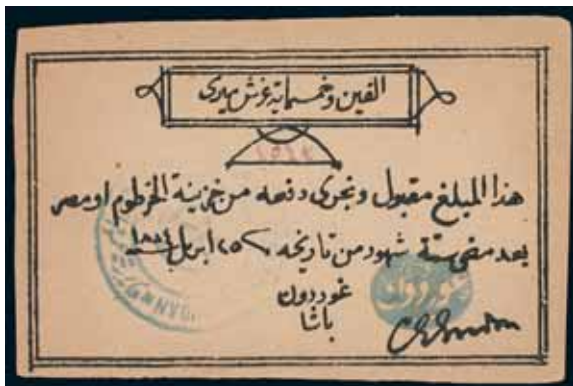 الفين وخمسماية غرش ميرى
هذا المبلغ مقبول وتجرى دفعه من خزينة الخرطوم او مصر
بعد مضى ستة شهور من تاريخه ٢٥ ابريل سنة ١٨٨٤
غوردون
باشا
غوردون